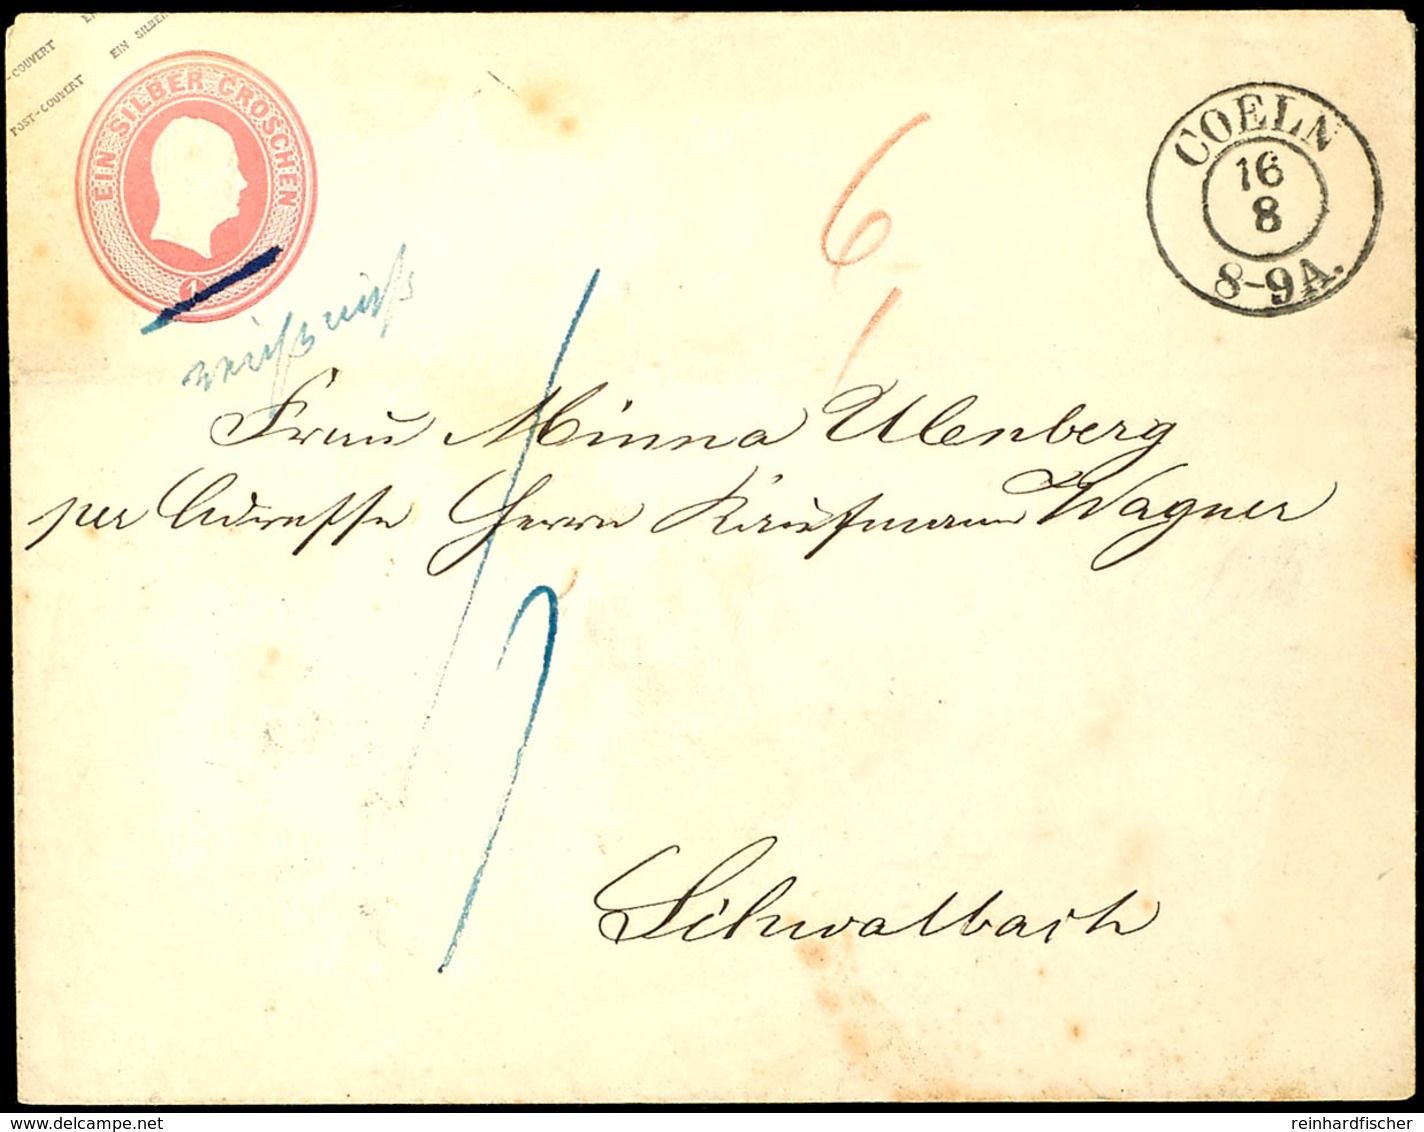 EIN SILBER
COUVERT
POST-COUVERT
EIN SILBER GROSCHEN
1
COELN
16
8
8-9A.
6
1
1
7
Frau Minna Ulenberg
per Adresse Herrn Kaufmann Wagner
Schwalbach
delcampe.net
reinhardfischer